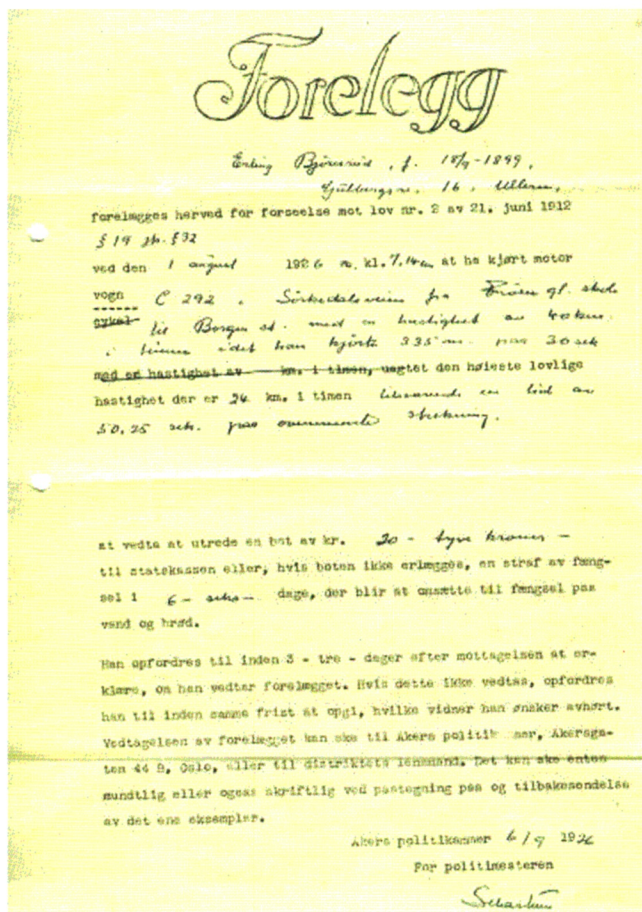 Forelegg
Erling , f. 18/9-1899,
16, Ullern,
forelægges herved for forseelse mot lov nr. 2 av 21. juni 1912
§ 19 jfr. § 32
ved den 1 august 1926 kl. 7.14 at ha kjørt motor
vogn C 292 , Sørkedalsveien fra gl. skole
cykel til Borgen st. med en hastighet av 40 km.
i timen idet han kjørte 335 m. paa 30 sek
med en hastighet av km. i timen, uagtet den høieste lovlige
hastighet der er 24 km. i timen tilsvarende en tid av
50,25 sek. paa ovennevnte strekning.
at vedta at utrede en bot av kr. 20 - tyve kroner -
til statskassen eller, hvis boten ikke erlægges, en straf av fæng-
sel i 6 - seks - dage, der blir at omsætte til fængsel paa
vand og brød.
Han opfordres til inden 3 - tre - dager efter mottagelsen at er-
klære, om han vedtar forelægget. Hvis dette ikke vedtas, opfordres
han til inden samme frist at opgi, hvilke vidner han ønsker avhørt.
Vedtagelsen av forelægget kan ske til Akers politik mer, Akersga-
ten 44 B, Oslo, eller til distriktets lensmand. Det kan ske enten
mundtlig eller ogsaa skriftlig ved paategning paa og tilbakesendelse
av det ene eksemplar.
Akers politikammer 6/9 1926
For politimesteren